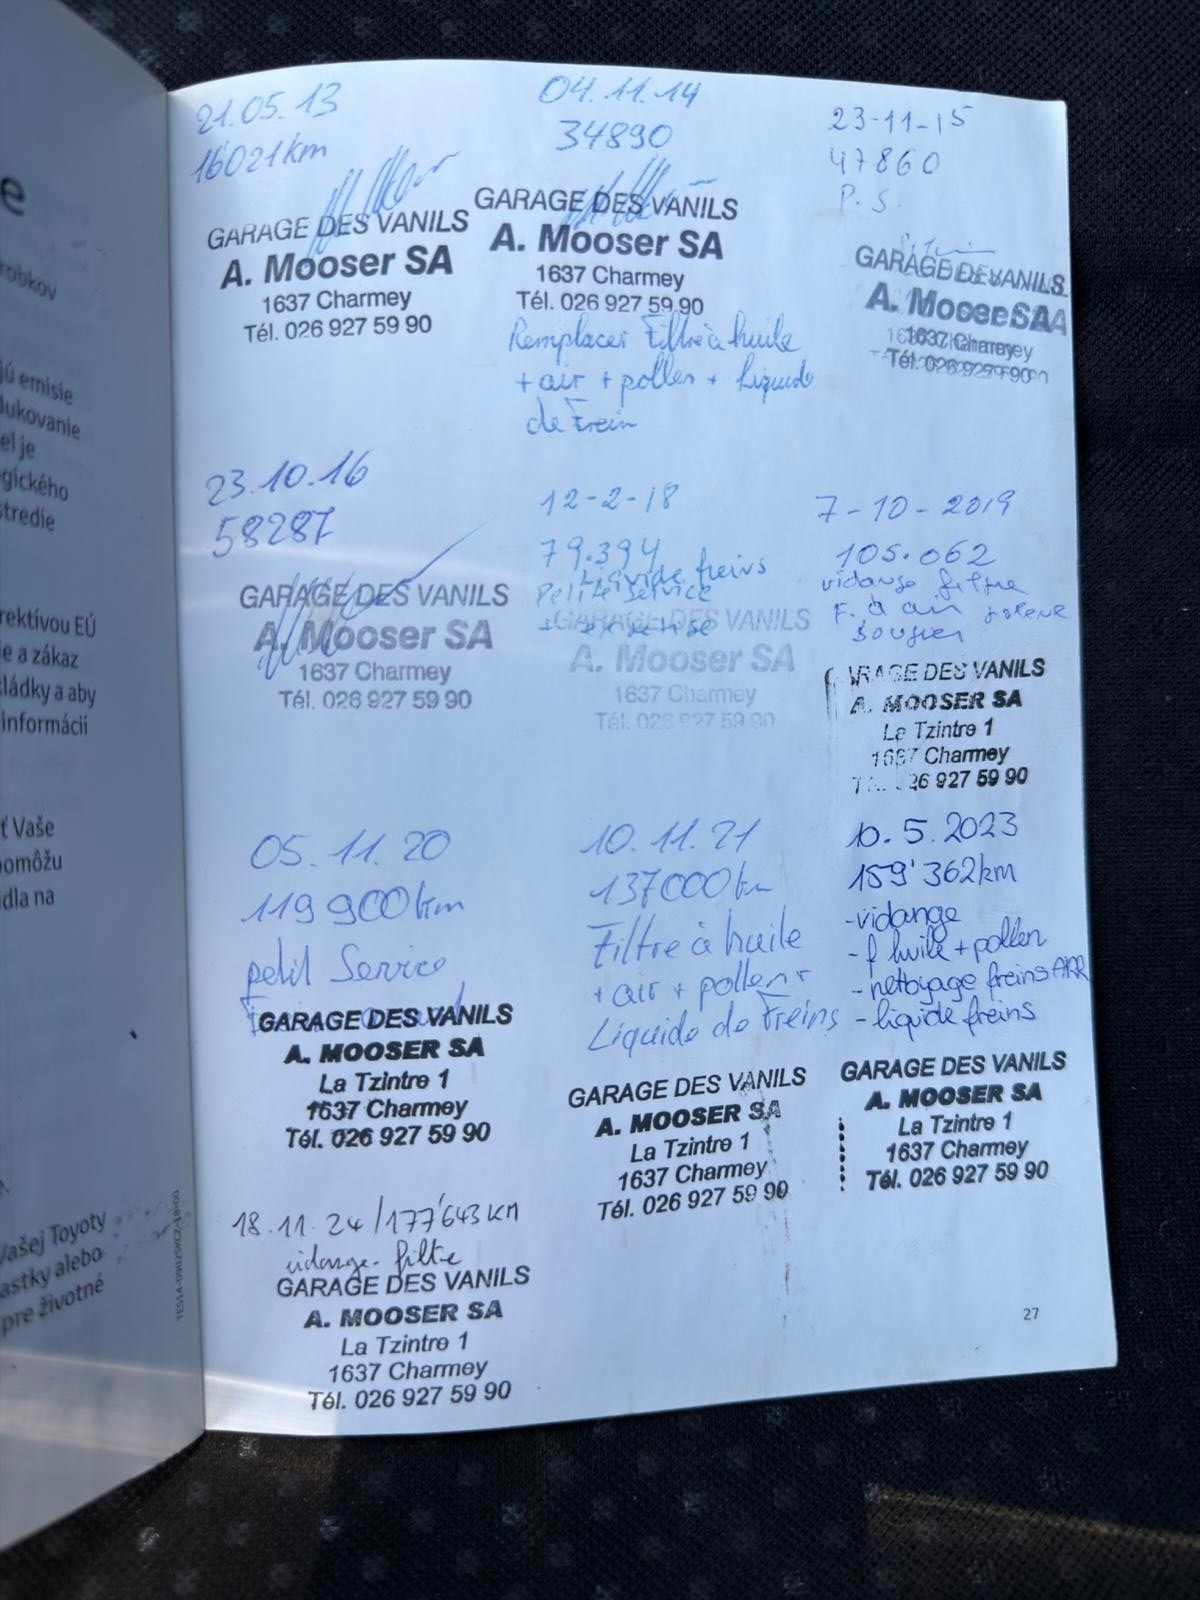 e
robkov
jú emisie
dukovanie
el je
gického
tredie
rektívou EÚ
e a zákaz
ládky a aby
informácií
ť Vaše
pomôžu
idla na
e.
Vašej Toyoty
astky alebo
pre životné
21.05.13
16'021km
GARAGE DES VANILS
A. Mooser SA
1637 Charmey
Tél. 026 927 59 90
04.11.14
34890
GARAGE DES VANILS
A. Mooser SA
1637 Charmey
Tél. 026 927 59 90
Remplacer Filtre à huile
+ air + pollen + Liquide
de Frein
23-11-15
47860
P.S.
GARAGE DES VANILS
A. Mooser SA
1637 Charmey
Tél. 026 927 59 90
23.10.16
58287
GARAGE DES VANILS
A. Mooser SA
1637 Charmey
Tél. 026 927 59 90
12-2-18
79.394
Liquide freins
Petite Service
GARAGE DES VANILS
A. Mooser SA
1637 Charmey
Tél. 026 927 59 90
7-10-2019
105.062
vidange filtre
F. à air
ARAGE DES VANILS
A. MOOSER SA
La Tzintre 1
1637 Charmey
26 927 59 90
05.11.20
119900km
petit Service
GARAGE DES VANILS
A. MOOSER SA
La Tzintre 1
1637 Charmey
Tél. 026 927 59 90
10.11.21
137000km
Filtre à huile
+ air + pollen +
Liquide de Freins
GARAGE DES VANILS
A. MOOSER SA
La Tzintre 1
1637 Charmey
Tél. 026 927 59 90
10.5.2023
159'362km
-vidange
-f huile + pollen
-nettoyage freins ARR
-liquide freins
GARAGE DES VANILS
A. MOOSER SA
La Tzintre 1
1637 Charmey
Tél. 026 927 59 90
18.11.24/177'643KM
vidange-filtre
GARAGE DES VANILS
A. MOOSER SA
La Tzintre 1
1637 Charmey
Tél. 026 927 59 90
27